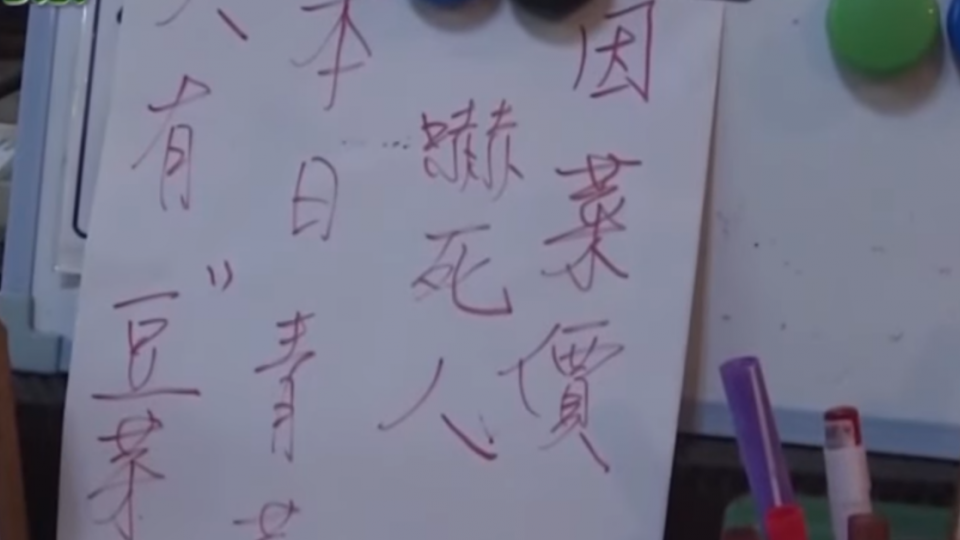 因菜價
嚇死人
本日青
有"豆菜